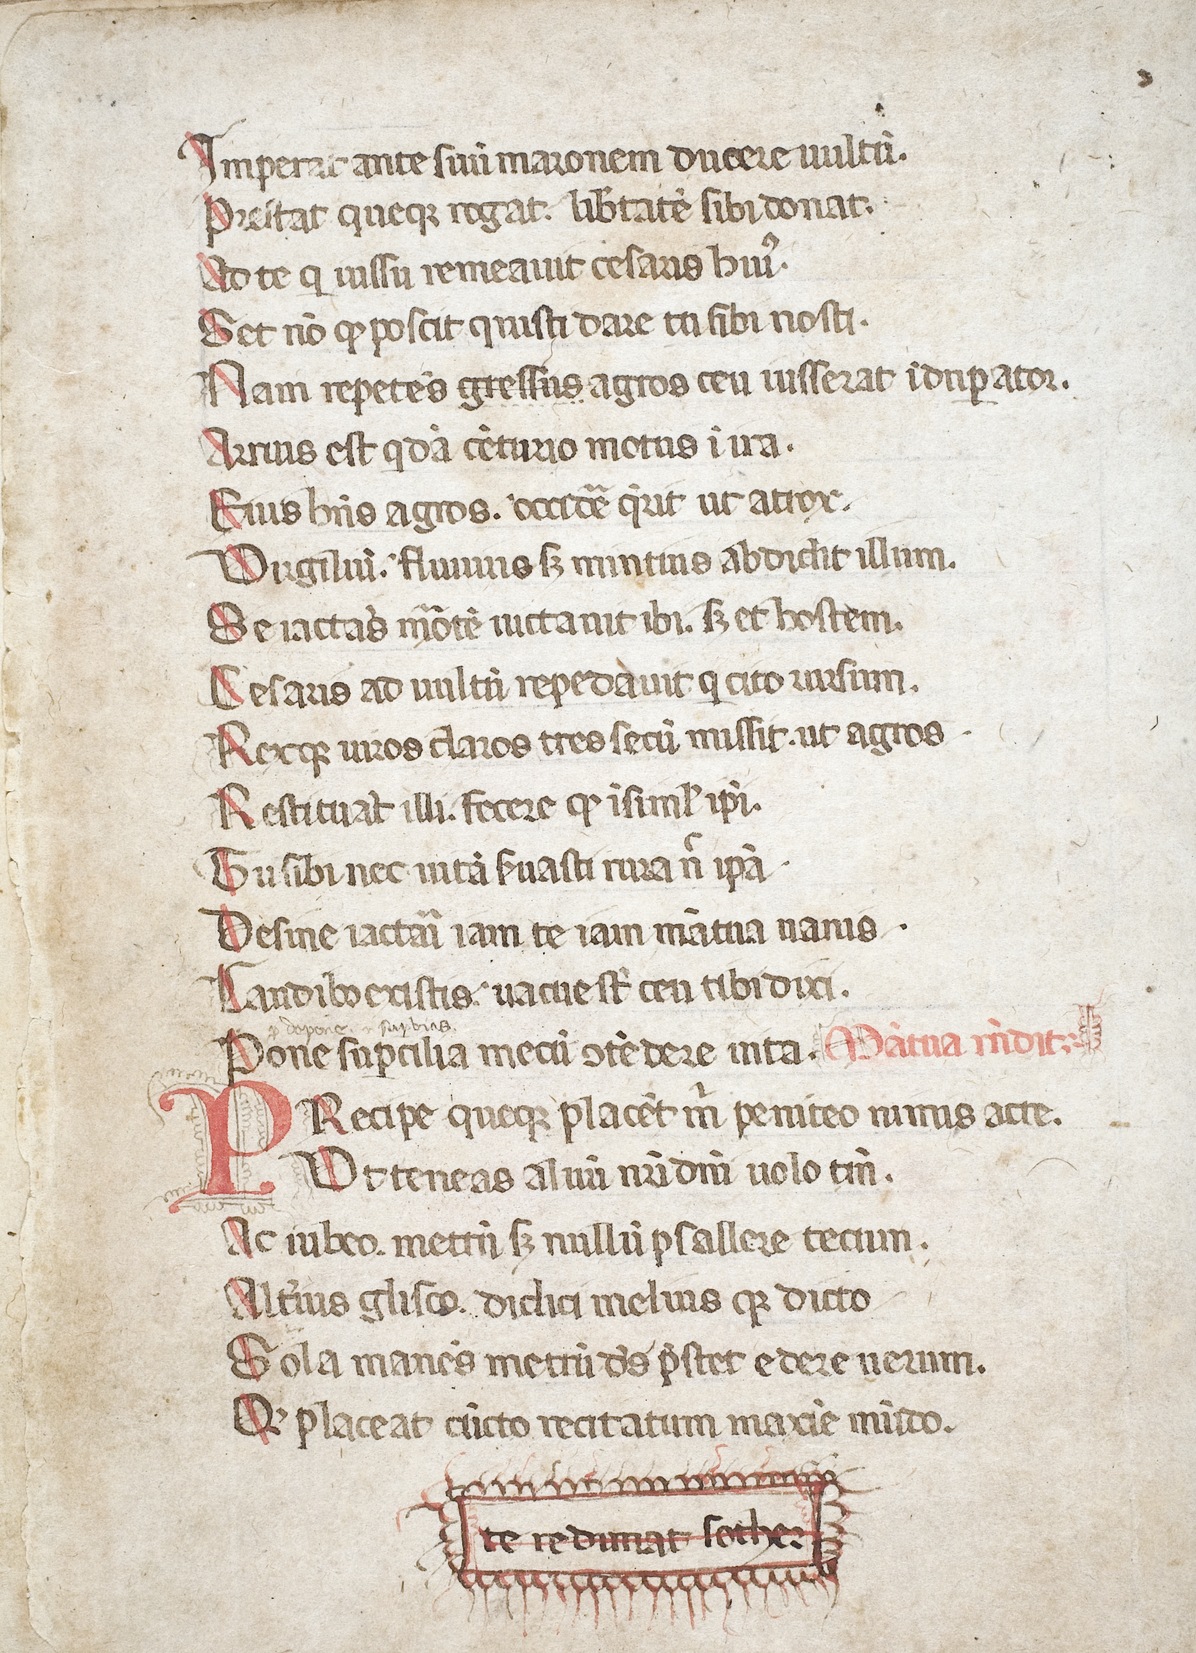 Imperat ante suū maronem ducere uultū.
Prestat queqꝫ rogat. lib̄tatē sibi donat.
Ad te q̄ iussu remeauit cesaris huiꝰ.
Set nō qͥ poscit quisti dare tu sibi nosti.
Nam repetēs gressus agros ceu iusserat īduꝑator.
Arrius est qdā cēturio motus ī ira.
Eius hn̄s agros. occidē q̄rit ut atrox.
Virgiliū. fluuius sꝫ mintius abdidit illum.
Se iactās mōtē iactauit ibi. sꝫ et hostem.
Cesaris ad uultū repedauit q̄ cito rursum.
Rexqꝫ uiros claros tres secū missit. ut agros
Restituāt illi. fecere qͥ isimł ip̄i.
Tu sibi nec uitā s̄uasti rura n̄ ip̄a
Desine iactaī iam te iam mātua uanis
Laudibꝫ existis. uacue st̄ ceu tibi dixi.
p̄ depone
Pone suꝑcilia mecū stēdere uita. Mātua rn̄dit
PRecipe queqꝫ placēt m̄ peniteo nimis acte.
Vt teneas aluū nr̄i dn̄i uolo tm̄.
Ac iubeo. metrū sꝫ nullū psallere tectum.
Alt̄ius glisco. didici melius qꝫ dicto
Sola manēs metrū dˢ p̄stet edere uerum.
Qꝫ placeat cūcto recitatum maxīe mūdo.
te redimat sother